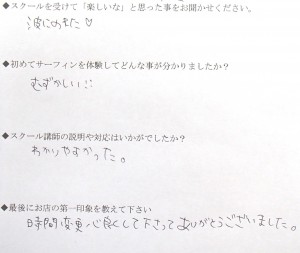 ◆スクールを受けて「楽しいな」と思った事をお聞かせください。
波にのれた♡
◆初めてサーフィンを体験してどんな事が分かりましたか？
むずかしい!!
◆スクール講師の説明や対応はいかがでしたか？
わかりやすかった。
◆最後にお店の第一印象を教えて下さい
時間変更心良くして下さってありがとうございました。